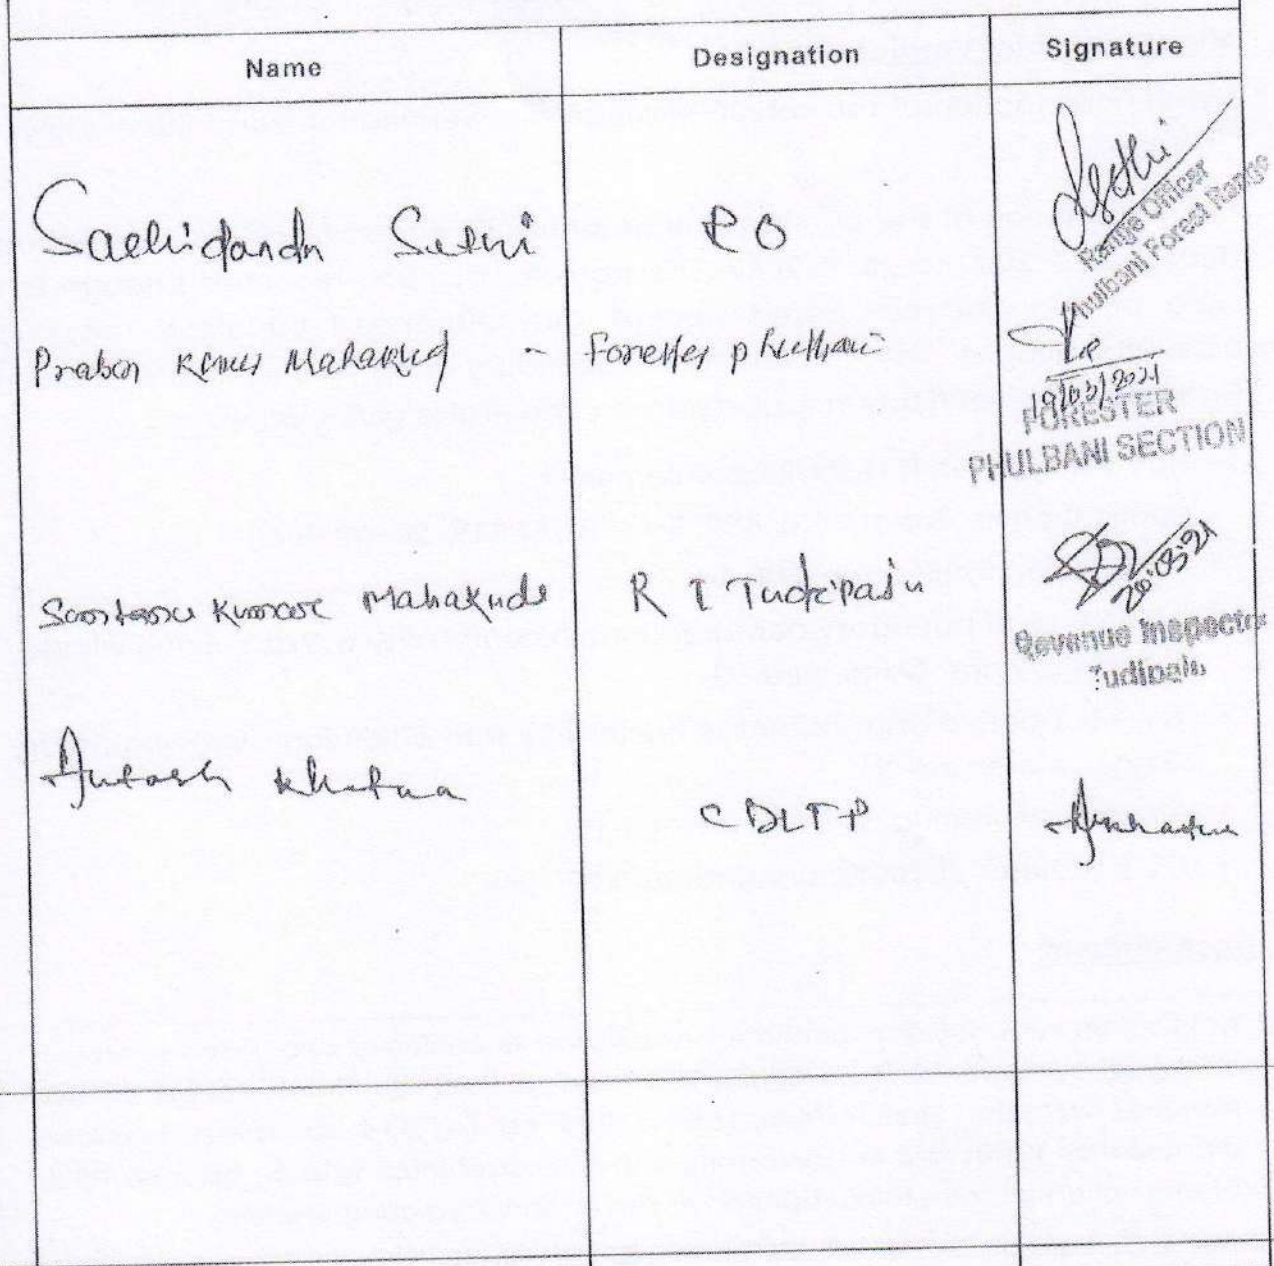 Name Designation Signature
Sachidanda Sethi RO Sethi
Range Officer
Phulbani Forest Range
Prabon Kumar Mahakud - Forester Phulbani
19/03/2021
FORESTER
PHULBANI SECTION
Santanu Kumar Mahakude R I Tudipaju
20.03.21
Revenue Inspector
Tudipaju
Khatua CDLTP